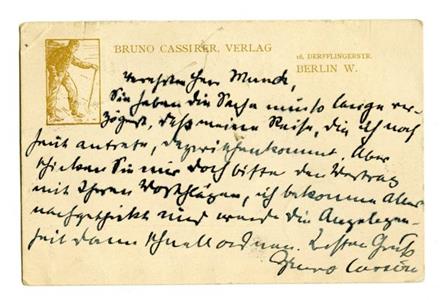 BRUNO CASSIRER, VERLAG
16, DERFFLINGERSTR.
BERLIN W.
Verehrter Herr Munch,
Sie haben die Sache nun so lange ver-
zögert, daß meine Reise, die ich noch
heut antrete, dazwischenkommt. Aber
schicken Sie mir doch bitte den Vertrag
mit Ihren Vorschlägen, ich bekomme Alles
nachgeschickt und werde die Angelegen-
heit dann schnell ordnen. Besten Gruß
Bruno Cassirer